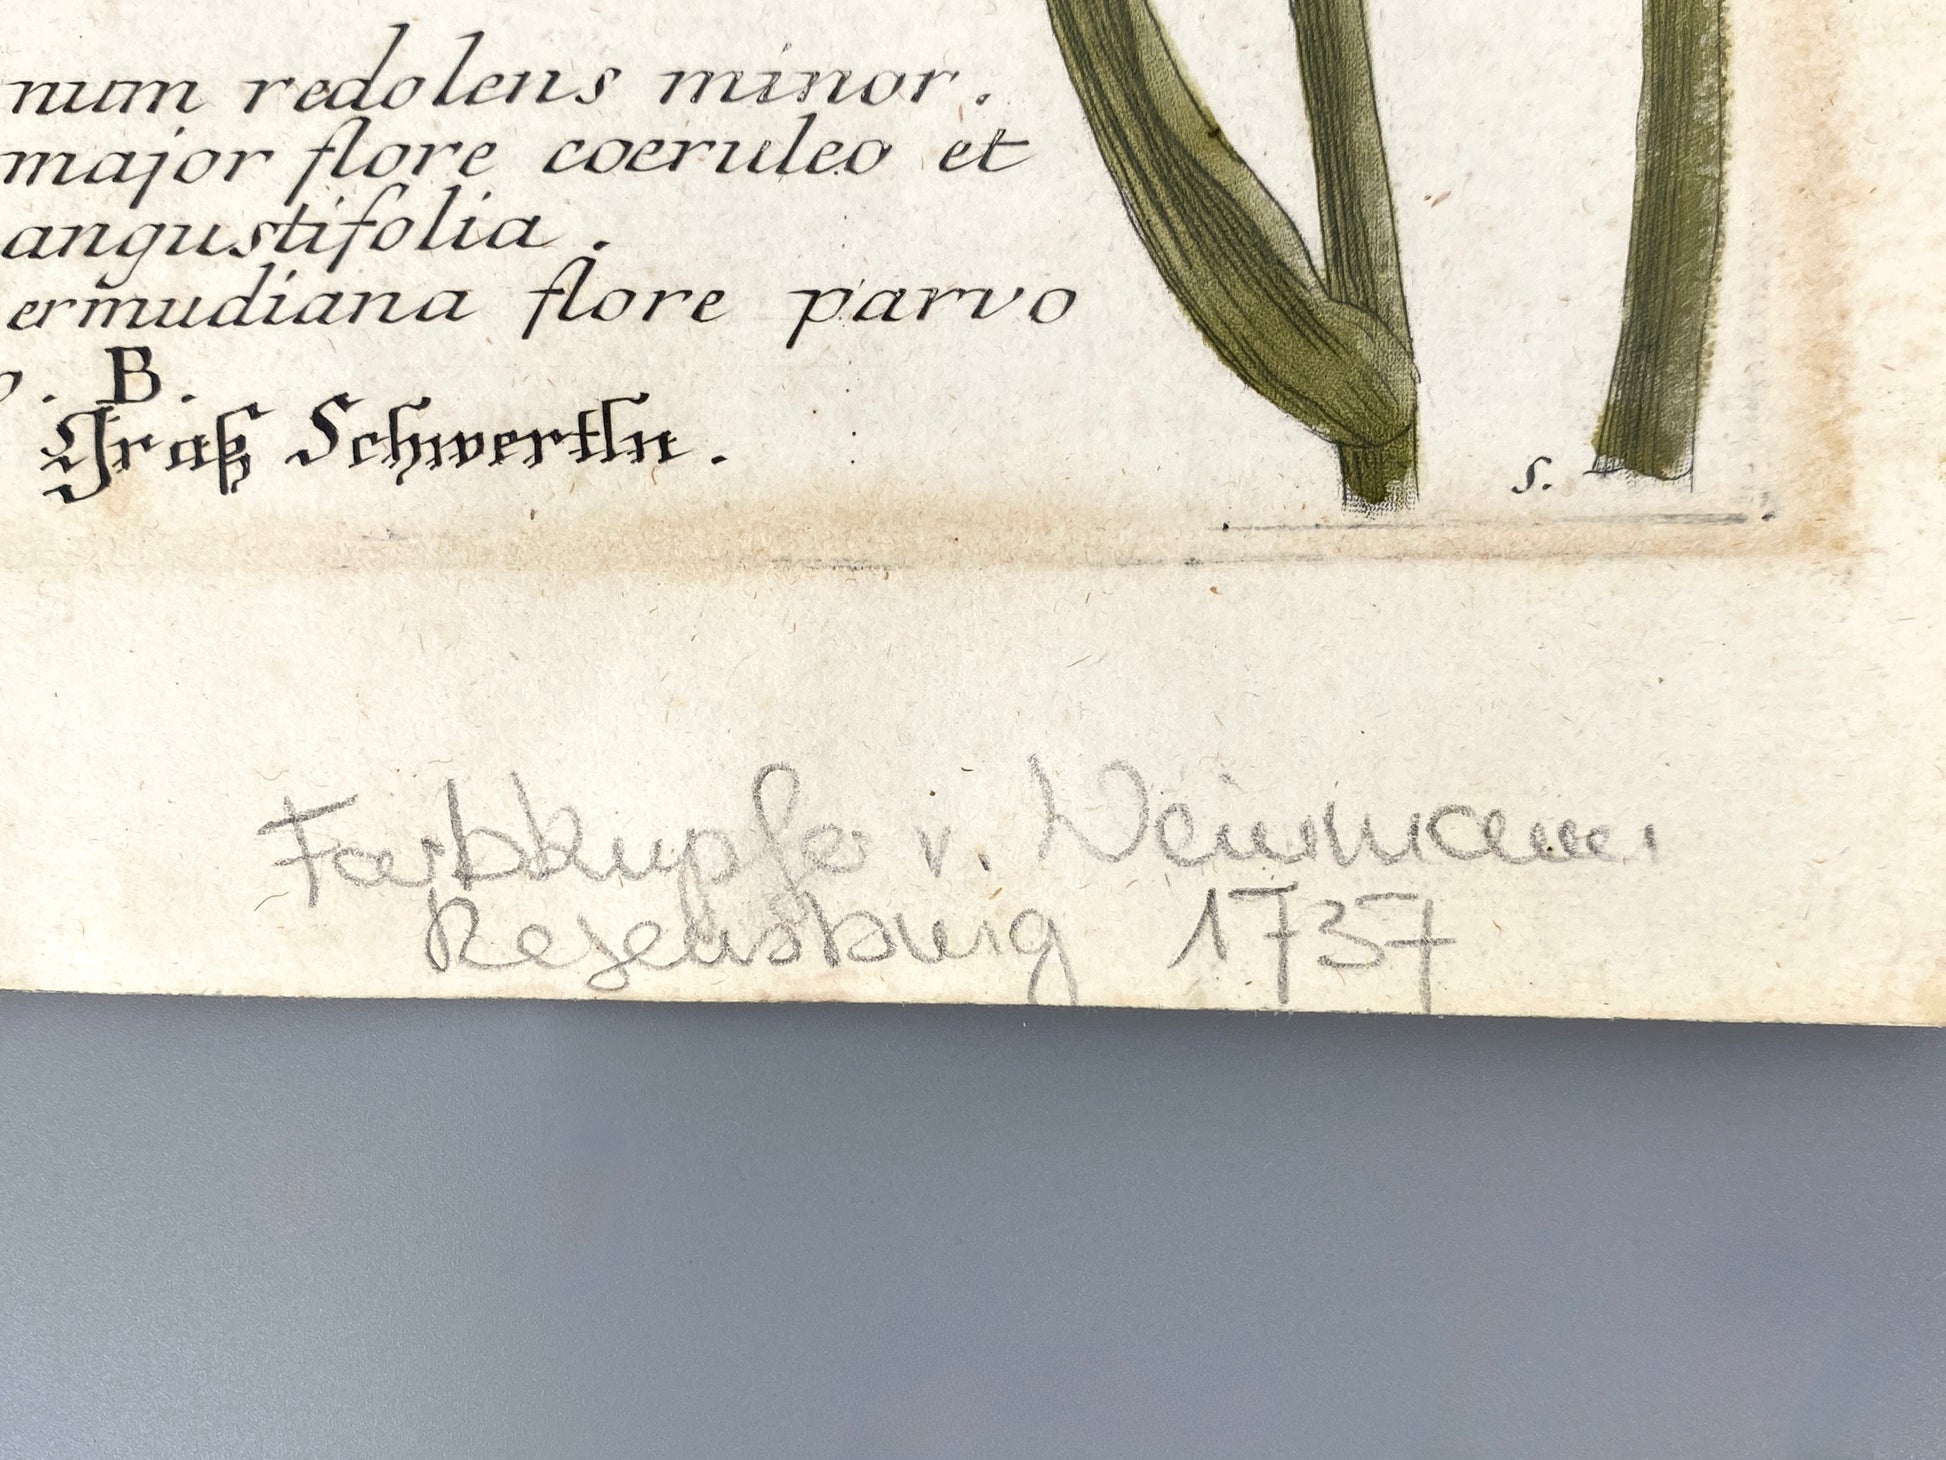 num redolens minor.
major flore coeruleo et
angustifolia.
ermudiana flore parvo
o. B.
Graß Schwertln.
S.
Farbkupfer v. Weinmann
Regensburg 1737